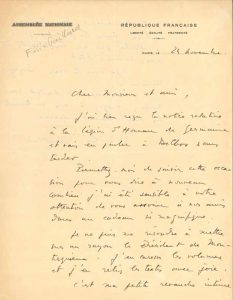 ASSEMBLÉE NATIONALE
RÉPUBLIQUE FRANÇAISE
LIBERTÉ ÉGALITÉ FRATERNITÉ
Félix Gaillard
PARIS, LE 25 Novembre
Cher Monsieur et ami,
J'ai bien reçu la notice relative
à la Légion d'Honneur de Germaine
et vais en parler à sans
tarder
Permettez-moi de saisir cette occa
sion pour vous dire à nouveau
combien j'ai été sensible à votre
attention de vous à nos amis
dans un cadeau si magnifique
Je ne puis me résoudre à mettre
sur un rayon le Président de Mon-
tesquieu. J'en les volumes
et j'en relis les textes avec joie.
C'est ma petite revanche intime